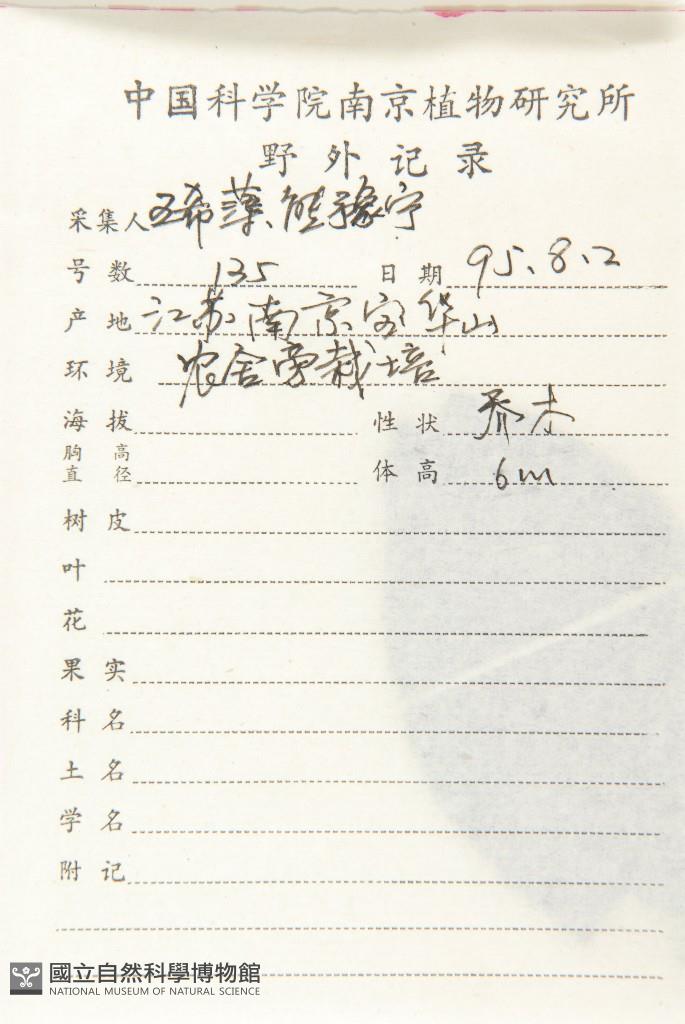 中国科学院南京植物研究所
野外记录
采集人 王希蕖、熊豫宁
号数 135 日期 95.8.2
产地 江苏南京宝华山
环境 农舍旁栽培
海拔 性状 乔木
胸高直径 体高 6m
树皮
叶
花
果实
科名
土名
学名
附记
國立自然科學博物館
NATIONAL MUSEUM OF NATURAL SCIENCE